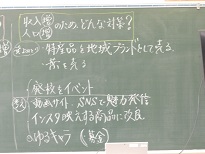 収入増 のため、どんな対策?
人口増
特産品を地域ブランドとして売る
旅を売る
廃校をイベント
動画サイト、SNSで魅力発信
インスタ映えする商品に改良
ゆるキャラ(募金)